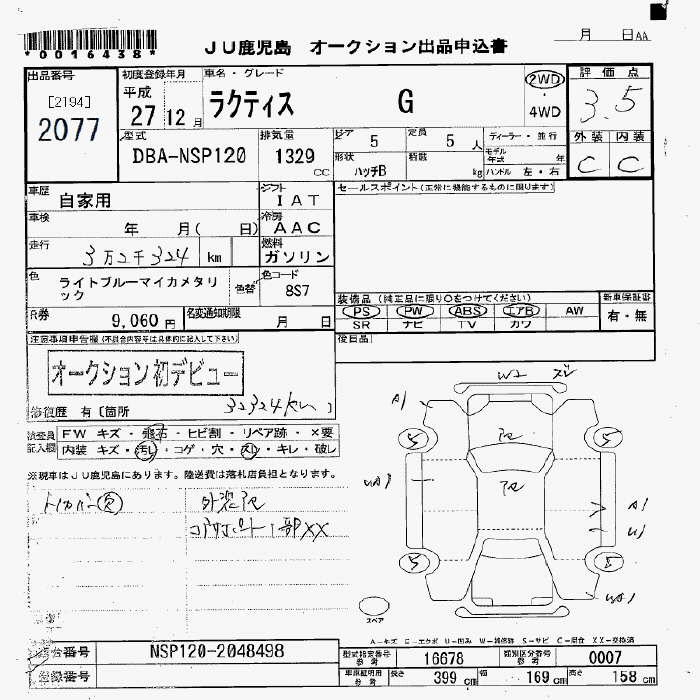 *0016438*
JU鹿児島 オークション出品申込書
月 日AA
出品番号 初度登録年月 車名・グレード 評価点
[2194] 平成 2WD
2077 27 12月 ラクティス G 4WD 3.5
型式 排気量 ドア 5 定員 5人 ディーラー・並行 外装 内装
DBA-NSP120 1329cc 形状 ハッチB 積載 kg モデル年式 年 C C
ハンドル 左・右
車歴 自家用 シフト IAT セールスポイント(正常に機能するものに限ります)
車検 年 月( 日) 冷房 AAC
走行 3万2千324 km 燃料 ガソリン
色 ライトブルーマイカメタリック 色替 色コード 8S7
R券 9,060円 名変通知期限 月 日
装備品(純正品に限り○をつけてください) 新車保証書
PS PW ABS エアB AW 有・無
SR ナビ TV カワ
注意事項申告欄(不具合内容等は具体的に記入して下さい) 後日品
オークション初デビュー
修復歴 有〔箇所 32324km 〕
検査員記入欄 FW キズ・飛石・ヒビ割・リペア跡・×要
内装 キズ・汚レ・コゲ・穴・スレ・キレ・破レ
※現車はJU鹿児島にあります。陸送費は落札店負担となります。
トノカバー欠 外装
1部XX
W2 ズレ
A1
5 5
UA1
A1
U1
5 8
UA1
スペア
A-キズ E-エクボ U-凹み W-補修跡 S-サビ C-腐食 XX-交換済
車台番号 NSP120-2048498 型式指定番号 参考 16678 類別区分番号 参考 0007
登録番号 車庫証明用 参考 長さ 399cm 幅 169cm 高さ 158cm